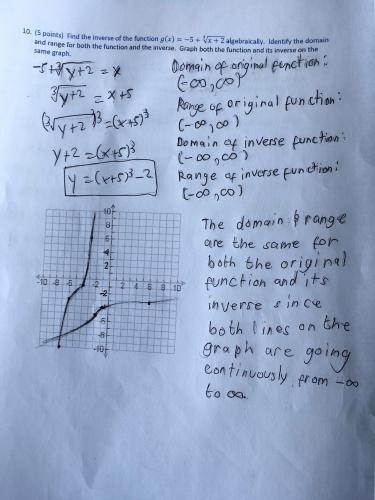 10. (5 points) Find the inverse of the function g(x) = -5 + ∛x + 2 algebraically. Identify the domain
and range for both the function and the inverse. Graph both the function and its inverse on the
same graph.
-5+∛y+2 = x
∛y+2 = x+5
(∛y+2)³=(x+5)³
y+2=(x+5)³
y=(x+5)³-2
Domain of original function:
(-∞,∞)
Range of original function:
(-∞,∞)
Domain of inverse function:
(-∞,∞)
Range of inverse function:
(-∞,∞)
10
8
6
4
2
-10 -8 -6 -4 -2 2 4 6 8 10
-2
-4
-6
-8
-10
The domain & range
are the same for
both the original
function and its
inverse since
both lines on the
graph are going
continuously from -∞
to ∞.